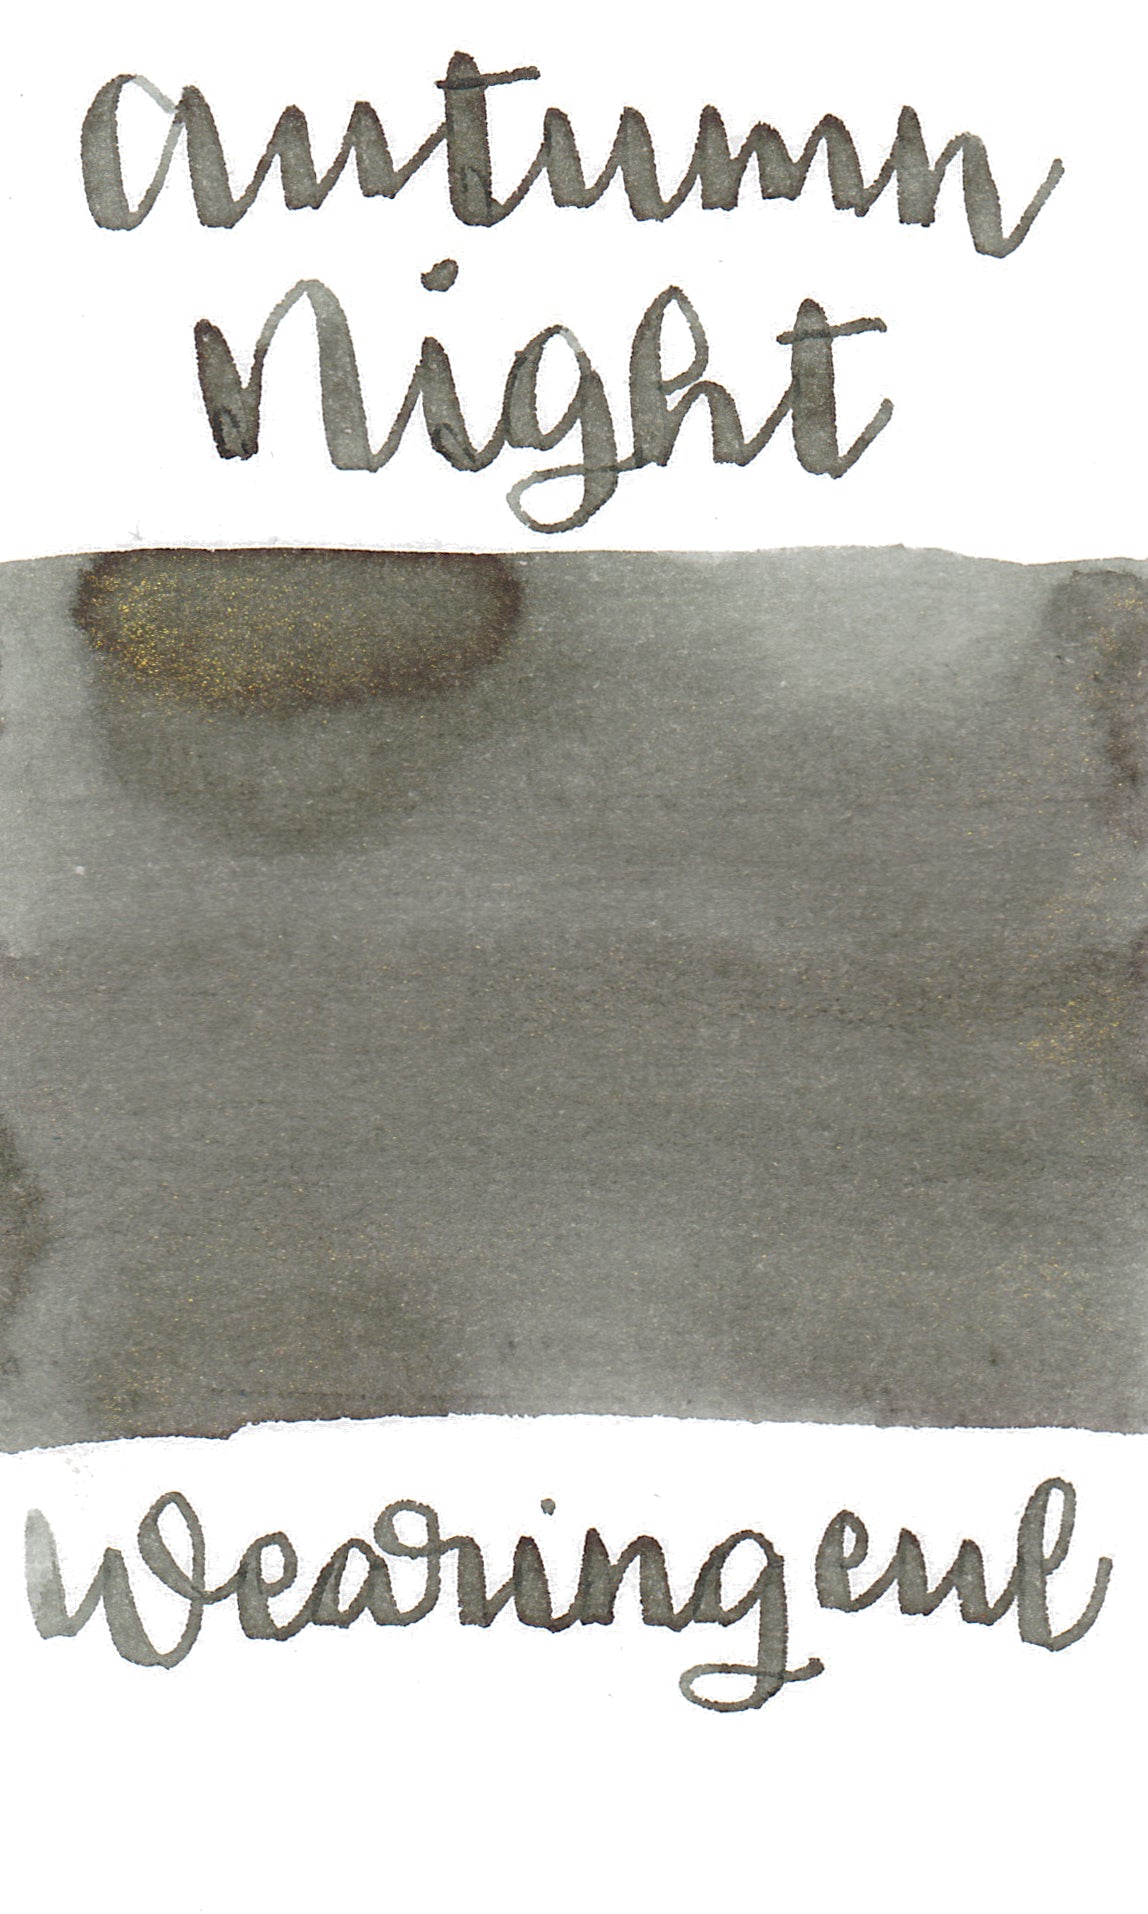 autumn
Night
Wearingeul